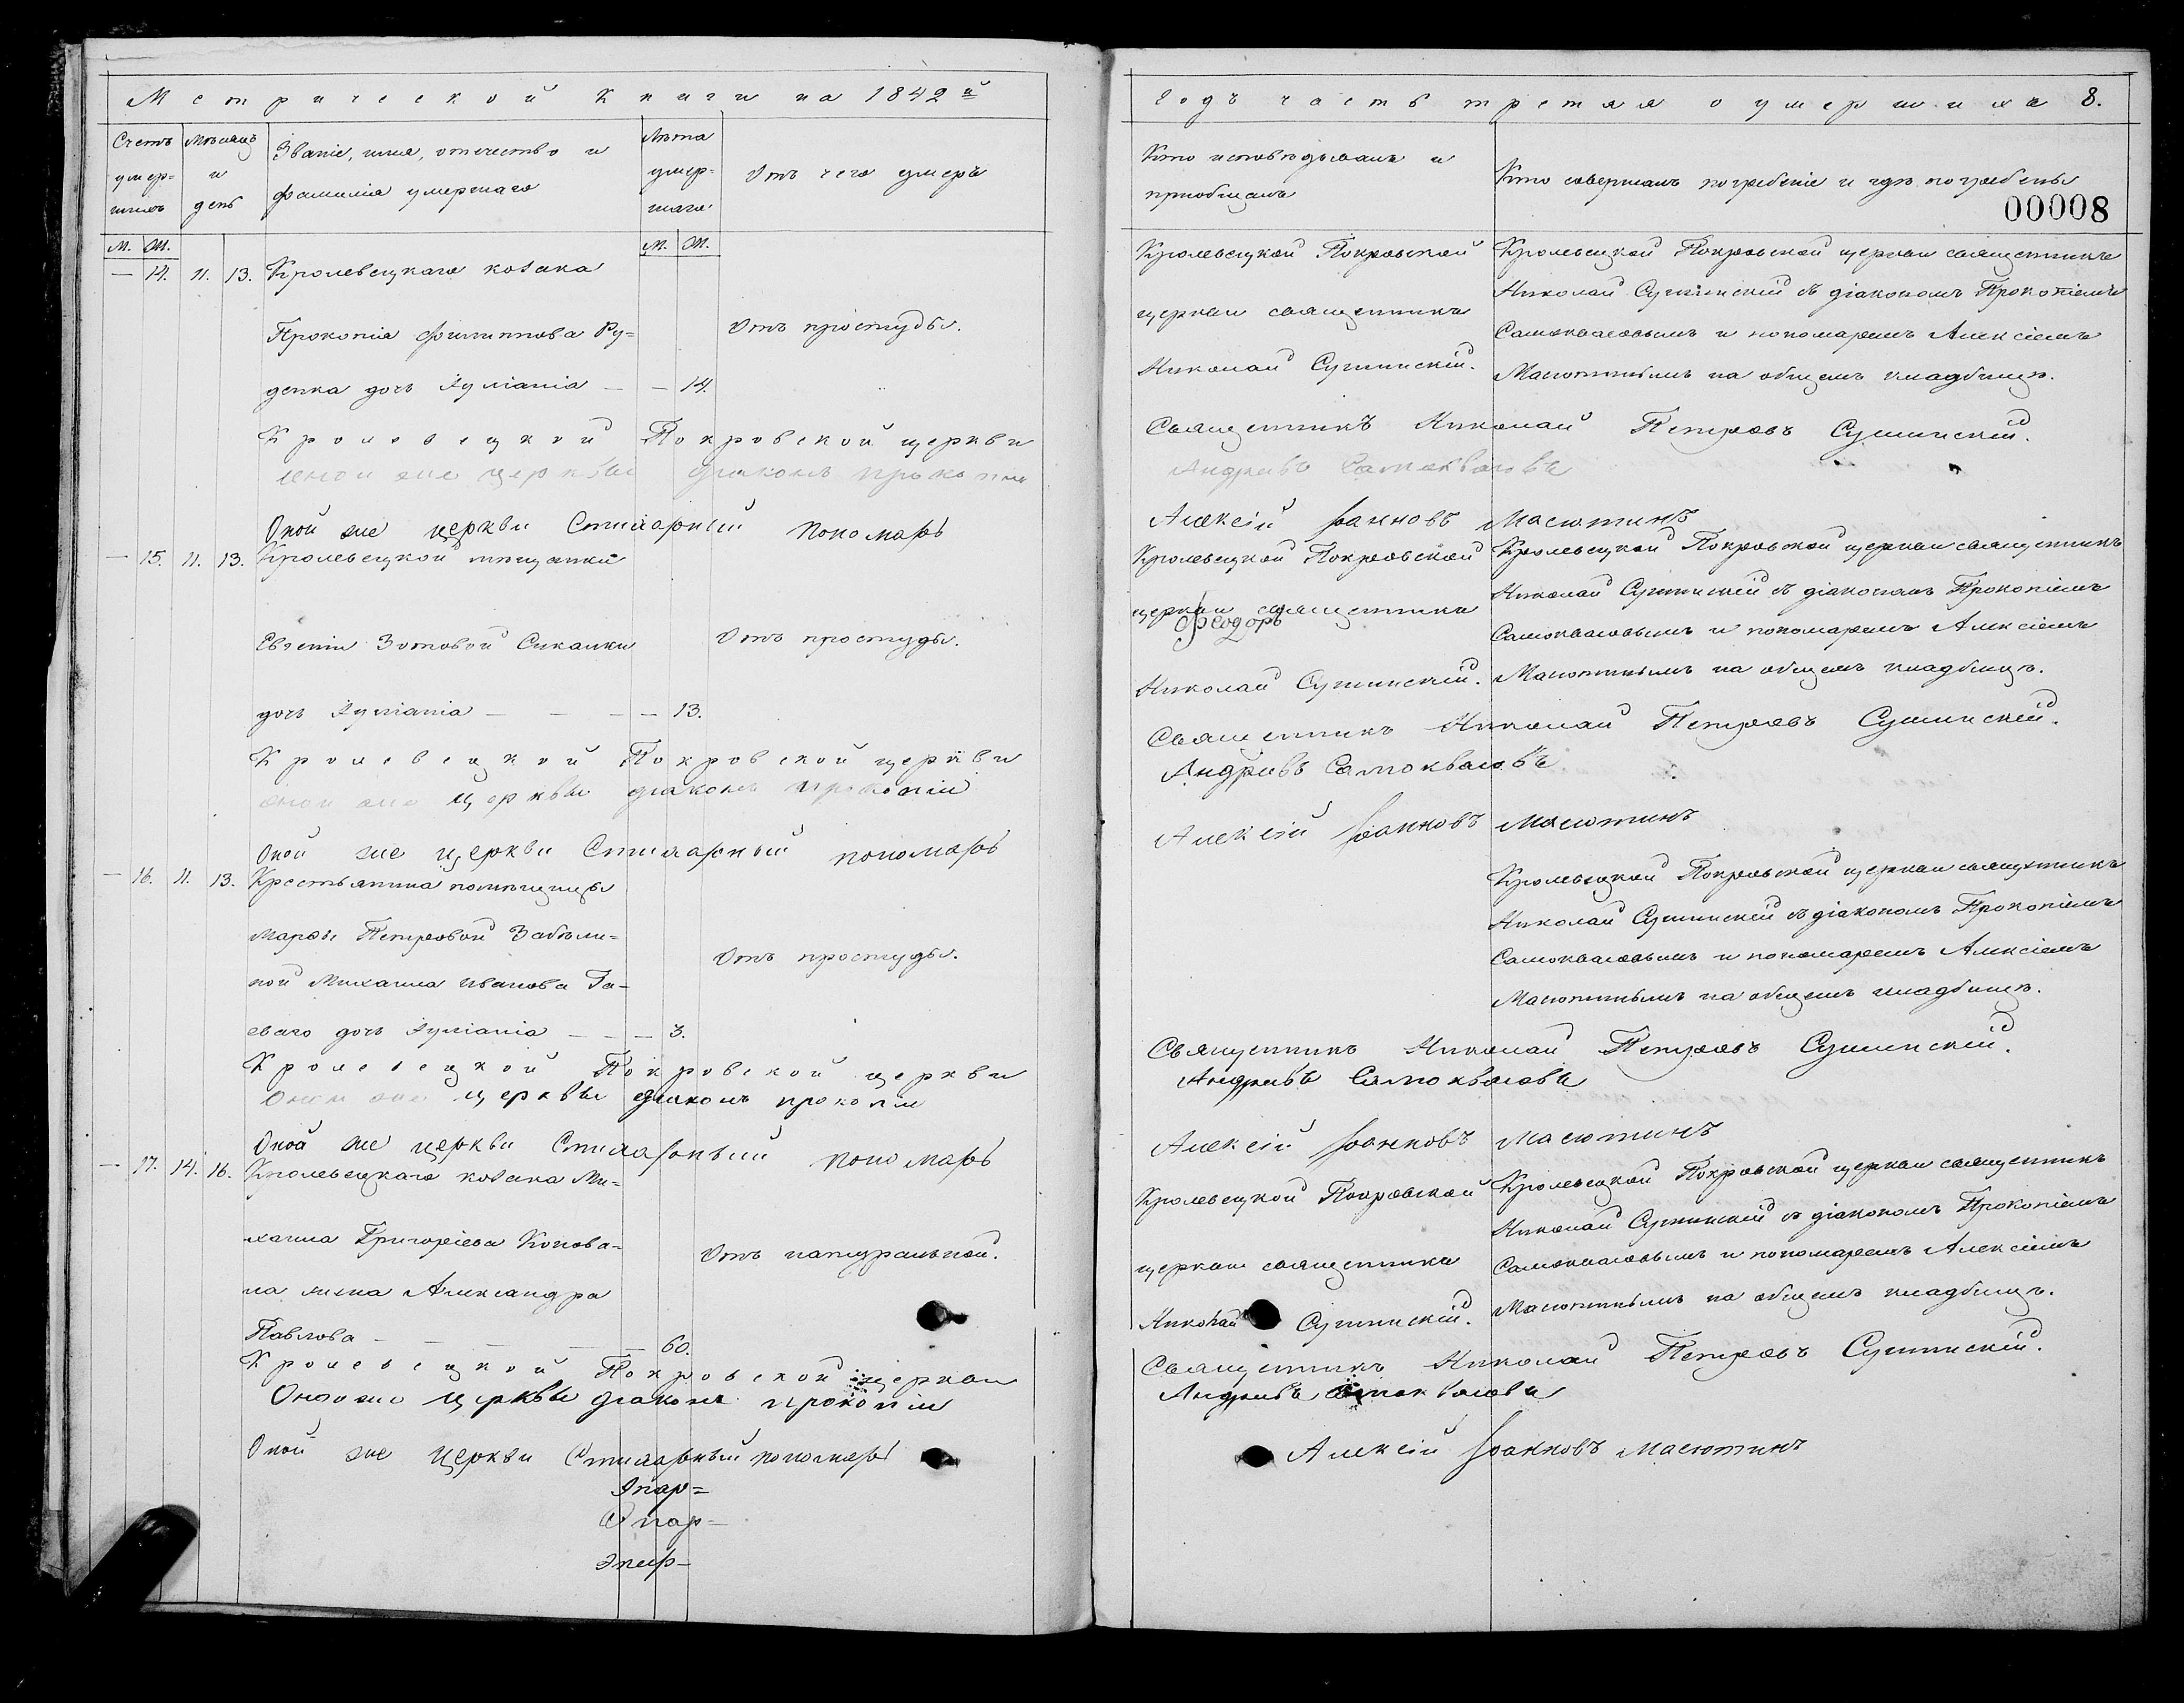 Метрической книги на 1842й
Счетъ умер-шихъ
Мѣсяцъ и день
Званіе, имя, отчество и фамилія умершаго
Лѣта умер-шаго
Отъ чего умеръ
М. Ж.
М. Ж.
— 14. 11. 13. Кролевецкаго козака
Прокопія Филиппова Ру=
денка дочь Іуліанія — — 14.
Отъ простуды.
Кролевецкой Покровской церкви
оной же церквы діаконъ прокопій
Оной же церкви Стихарный пономаръ
— 15. 11. 13. Кролевецкой мѣщанки
Евгеніи Зотовой Сикалки
Отъ простуды.
дочь Іуліанія — — — 13.
Кролевецкой Покровской церкви
оной же церквы діаконъ прокопій
Оной же церкви Стихарный пономаръ
— 16. 11. 13. Крестьянина помѣщицы
Марфы Петровой Забѣли=
ной Михаила Иванова Га-
еваго дочь Іуліанія — — — 3.
Отъ простуды.
Кролевецкой Покровской церкви
Оной же церквы діаконъ прокопій
Оной же церкви Стихарный пономаръ
— 17. 14. 16. Кролевецкаго козака Ми=
хаила Григоріева Конова=
ла жена Александра
Павлова — — — 60.
Отъ натуральной.
Кролевецкой Покровской церкви
Оной же церквы діаконъ прокопій
Оной же церкви Стихарный пономаръ
годъ часть третяя о умершихъ 8.
Кто исповѣдывалъ и
пріобщалъ
Кто совершалъ погребеніе и гдѣ погребены
00008
Кролевецкой Покровской
церкви священникъ
Николай Сушинскій.
Кролевецкой Покровской церкви священникъ
Николай Сушинскій съ діакономъ Прокопіемъ
Самоквасовымъ и пономаремъ Алексіемъ
Масютинымъ на общемъ кладбищѣ.
Священникъ Николай Петровъ Сушинскій.
Андріевъ Самоквасовъ
Алексій Іоанновъ Масютинъ
Кролевецкой Покровской
церкви священникъ
Феодоръ
Николай Сушинскій.
Кролевецкой Покровской церкви священникъ
Николай Сушинскій съ діакономъ Прокопіемъ
Самоквасовымъ и пономаремъ Алексіемъ
Масютинымъ на общемъ кладбищѣ.
Священникъ Николай Петровъ Сушинскій.
Андріевъ Самоквасовъ
Алексій Іоанновъ Масютинъ
Кролевецкой Покровской церкви священникъ
Николай Сушинскій съ діакономъ Прокопіемъ
Самоквасовымъ и пономаремъ Алексіемъ
Масютинымъ на общемъ кладбищѣ.
Священникъ Николай Петровъ Сушинскій.
Андріевъ Самоквасовъ
Алексій Іоанновъ Масютинъ
Кролевецкой Покровской
церкви священникъ
Николай Сушинскій.
Кролевецкой Покровской церкви священникъ
Николай Сушинскій съ діакономъ Прокопіемъ
Самоквасовымъ и пономаремъ Алексіемъ
Масютинымъ на общемъ кладбищѣ.
Священникъ Николай Петровъ Сушинскій.
Андріевъ Самоквасовъ
Алексій Іоанновъ Масютинъ